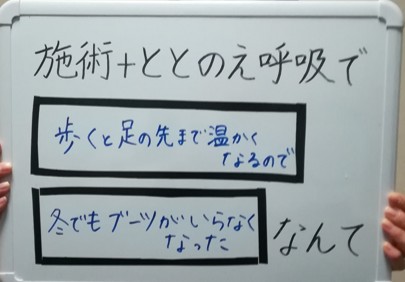 施術+ととのえ呼吸で
歩くと足の先まで温かく
なるので
冬でもブーツがいらなく
なった
なんて